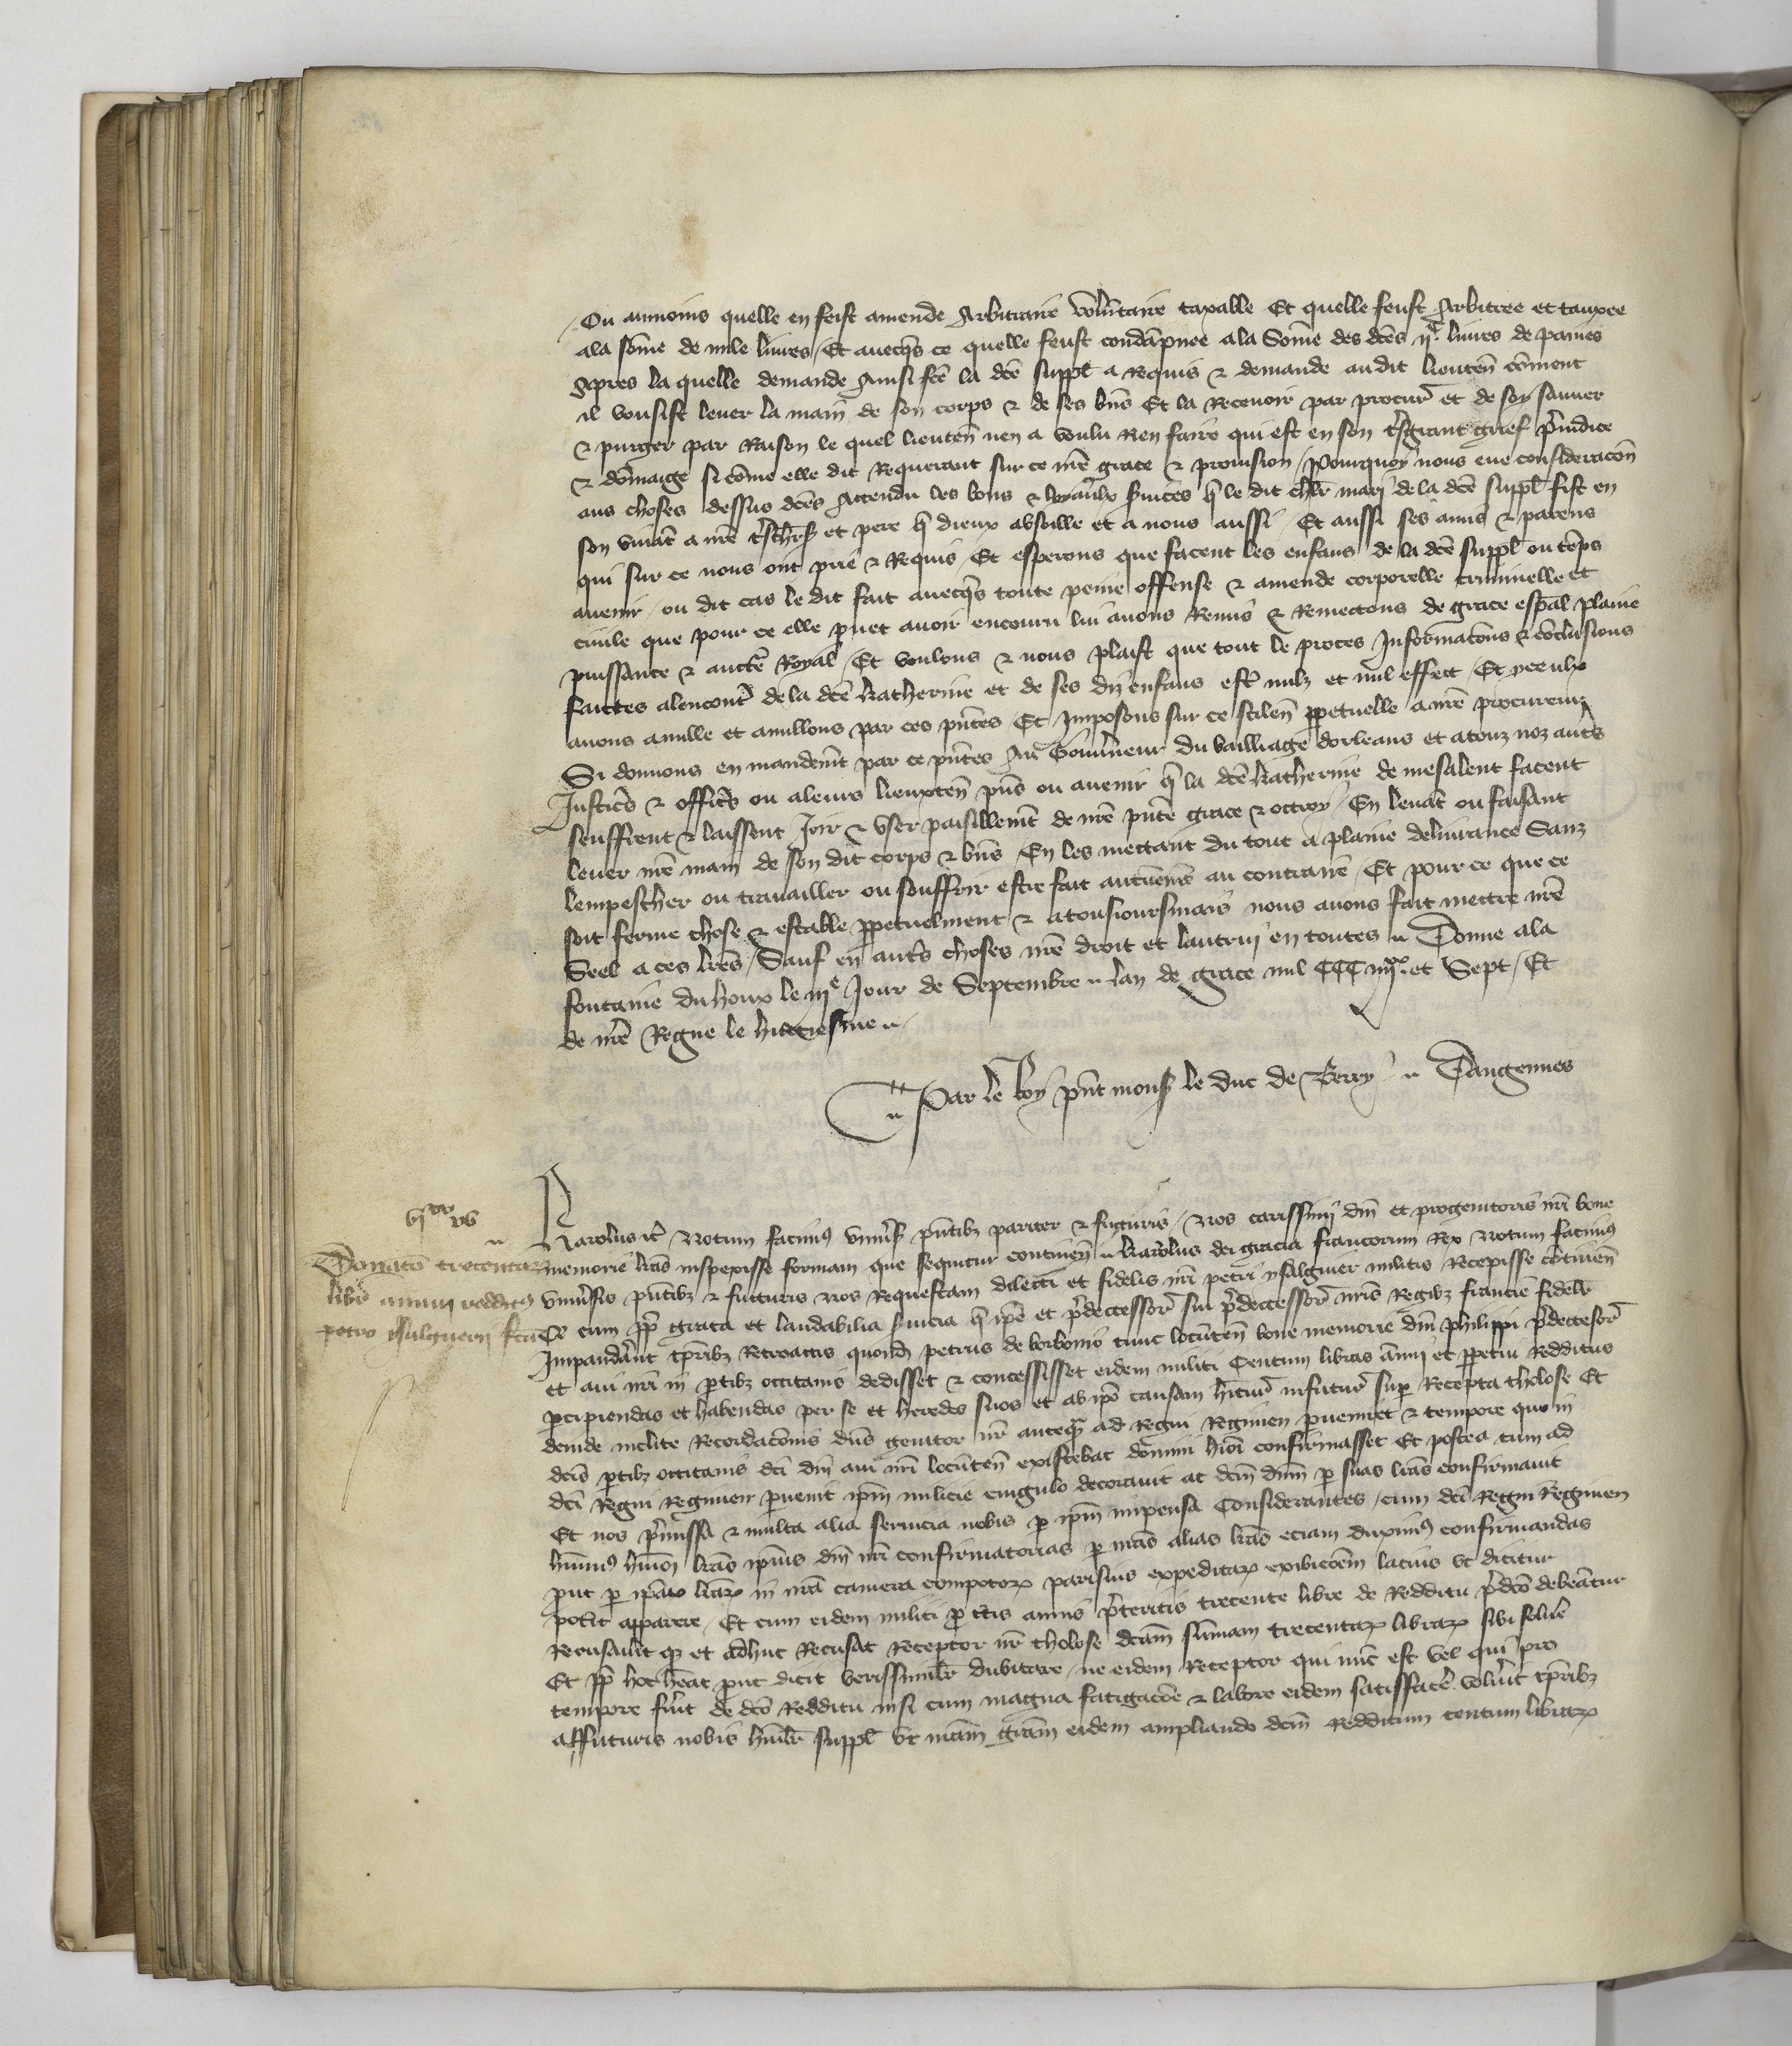 Ou aumoins quelle en feist amende Arbitraire volūtaire taxable Et quelle feust Arbitree et tauxee
ala some de mile livres / Et avecqs ce quelle feust condāpnee ala Some des dces ijc livres de paines
Apres la quelle demande Ainsi fce la dce suppl a Requis & demande audit lieuten coment
il vousist lever la main de son corps & de ses bns Et la Recevoir par procur et de soy sauver
& purger par Raison le quel lieuten nen a voulu Rien faire qui est en son tsgrant grief preiudice
& domaige si come elle dit Requerant sur ce nre grace & provision / Pourquoy nous eue consideracon
aus choses dessus dces Attendu les bons & services q le dit chlr mari de la dce suppl fist en
son vivāt a nre et pere q dieux absoille et a nous aussi / Et aussi ses amis & parens
qui sur ce nous ont prie & Requis / Et esperons que facent les enfans de la dce suppl ou teps
avenir / ou dit cas le dit fait avecqs toute peine offense & amende corporelle criminelle et
civile que pour ce elle puet avoir encouru lui avons Remis & Remectons de grace espal plaine
puissance & aucte Royal / Et voulons & nous plaist que tout le proces Informacons & coclusions
faictes alencont de la dce katherine et de ses diz enfans est nulz et nul effect / Et
avons anulle et anullons par ces pntes Et Imposons sur ce scilen ppetuelle a nre procureur
Si donnons en mandemt par ce pntes Au Gouvneur du bailliage dorleans et atouz noz auts
Justics & offics ou aleurs lieuxten pns ou avenir q la dce katherine de mesalent facent
seuffrent & laissent Joir & user paisiblemt de nre pnte grace & ottroy / En levāt ou faisant
lever nre main de son dit corps & bns En les mettant du tout a plaine delivrance Sanz
lempescher ou travailler ou souffrir estre fait aucunemt au contraire / Et pour ce que ce
soit ferme chose & estable ppetuelment & atousioursmais nous avons fait mettre nre
Seel a ces lres / Sauf en auts choses nre droit et lautruy en toutes Donne ala
fontaine du houx le iije Jour de Septembre lan de grace mil CCC iiijxx et Sept / Et
de nre Regne le huitiesme
Par le Roy pnt mons le duc de Berry Dangennes
vjxx xv
Donatio trecentar
libr annui redditus
petro
Karolus etc Notum facimus univsis pntibz pariter & futuris / Nos carissimi dni et progenitoris nri bone
memorie lras inspexisse formam que sequitur continen Karolus dei gracia francorum Rex Notum facimus
univsis pntibz & futturis Nos Requestam dilecti et fidelis nri petri militis Recepisse continen
cum pp grata et laudabilia svicia q ipe et predecessor sui predecessor nris Regibz francie fidelr
Impandrut tpribz Retroactis quond petrus de borbonio tunc locuten bone memorie dni philippi predecesor
et avi nri in ptibz occitanis dedisset & concessisset eidem militi Centum libras anui et ppetui Redditus
pcipiendas et habendas per se et heredes suos et ab ipo causam hitur infutur sup Recepta tholose Et
deinde inclite Recordaconis dns genitor nr anteq ad Regni Regimen pueniret & tempore quo in
dcis ptibz occitanis dci dni avi nri locuten existebat confirmasset Et postea cum ad
dci Regni Regimen puenit ipm milicie cingulo decoravit ac dcm dnm p suas lras confirmavit
Et nos premissa & multa alia servicia nobis p ipm impensa Considerantes / cum dci Regni Regimen
huimus lras ipius dni nri confirmatorias p nras alias lras eciam duximus confirmandas
put p ipar lrar in nra camera compotor parisius expeditar exibicoem lacius ut dicitur
potit apparere / Et cum eidem militi p ctis annis preteritis trecente libre de Redditu predco debeātur
Recusavit q et adhuc Recusat Receptor nr tholose dcam sumam trecentar librar sibi solve
Et pp hoc heat put dicit verissimilr dubitare / ne eidem Receptor qui nuc est vel qui pro
tempore fuit de dco Redditu nisi cum magna fatigacoe & labore eidem satisface voluit tpribz
affuturis nobis humilr suppl ut nram gram eidem ampliando dcm Redditum centum librar